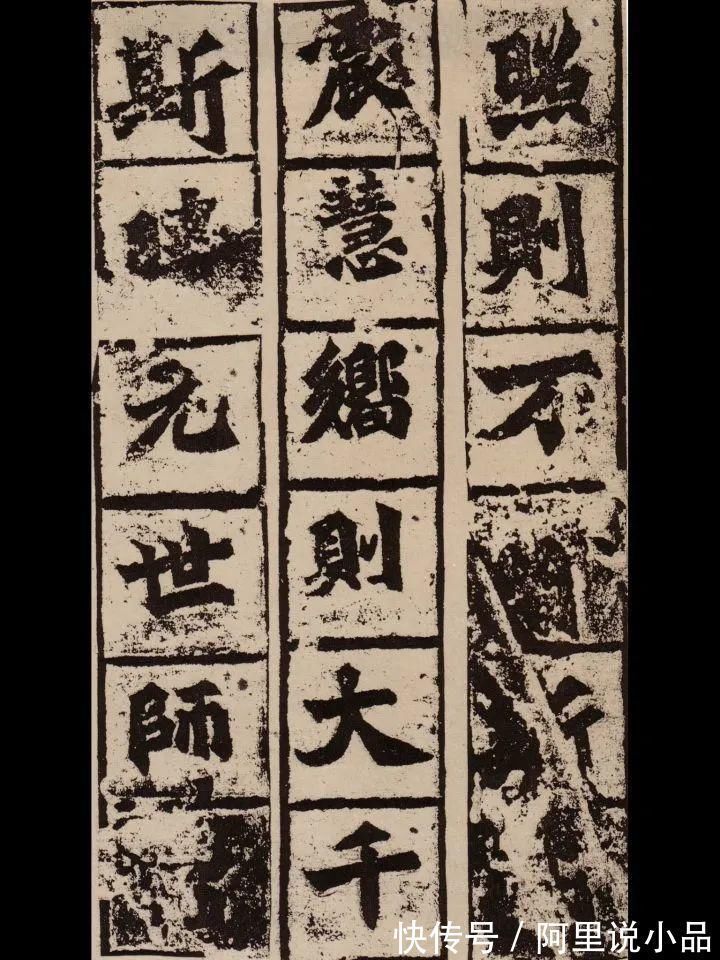 照則万
震慧嚮則大千
斯元世師
快传号 / 阿里说小品